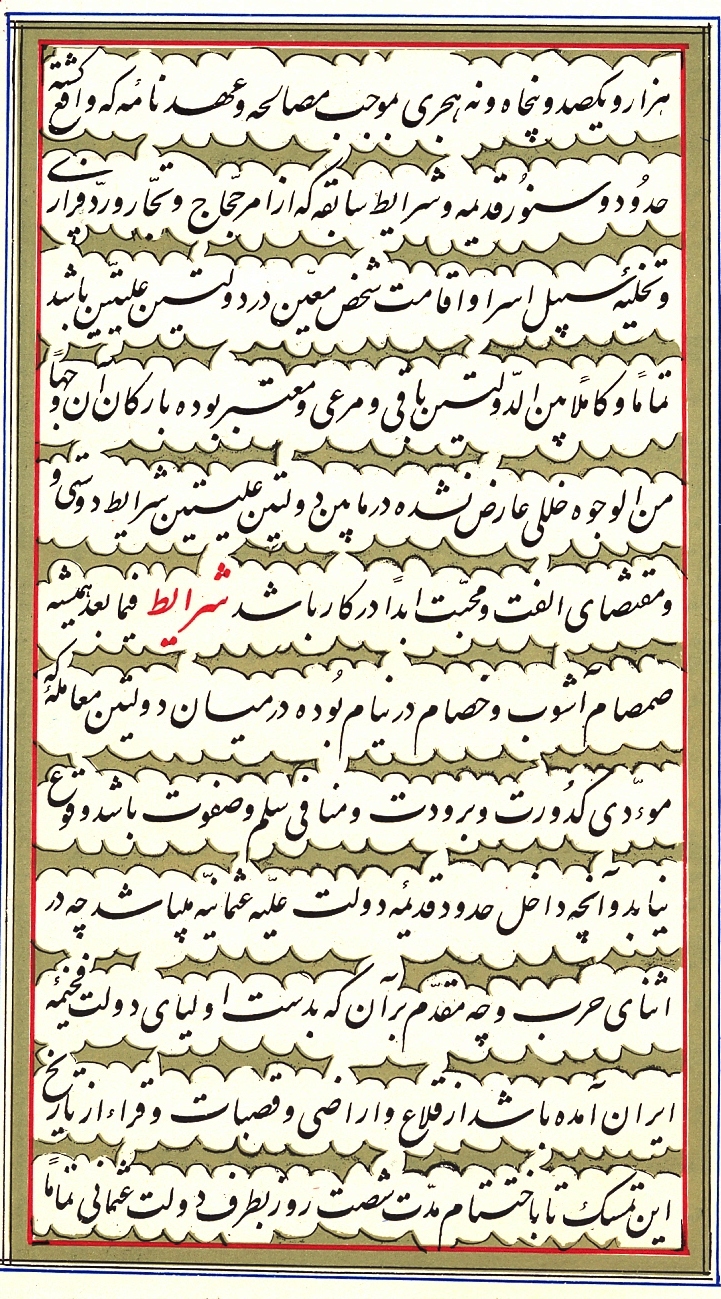 هزار و یکصد و پنجاه و نه هجری بموجب مصالحه و عهدنامه که واقع گشته
حدود و سنور قدیمه و شرایط سابقه که از امر حجّاج و تجّار و ردّ فراری
و تخلیهٔ سبیل اسرا و اقامت شخص معیّن در دولتین علیتین باشد
تماماً و کاملاً بین الدّولتین باقی و مرعی و معتبر بوده بارکان آن وجهاً
من الوجوه خللی عارض نشده در مابین دولتین علیتین شرایط دوستی و
و مقتضای الفت و محبّت ابداً در کار باشد شرایط فیما بعد همیشه
صمصام آشوب و خصام در نیام بُوده در میان دولتین معاملهٔ که
موءدّی کدُورت و برودت و منافی سلم و صفوت باشد وقوع
نیابد و آنچه داخل حدود قدیمهٔ دولت علیّه عثمانیّه میباشد چه در
اثنای حرب و چه مقدّم بر آن که بدست اولیای دولت فخیمهٔ
ایران آمده باشد از قلاع و اراضی و قصبات و قراء از تاریخ
این تمسک تا باختتام مدّت شصت روز بطرف دولت عثمانی تماماً